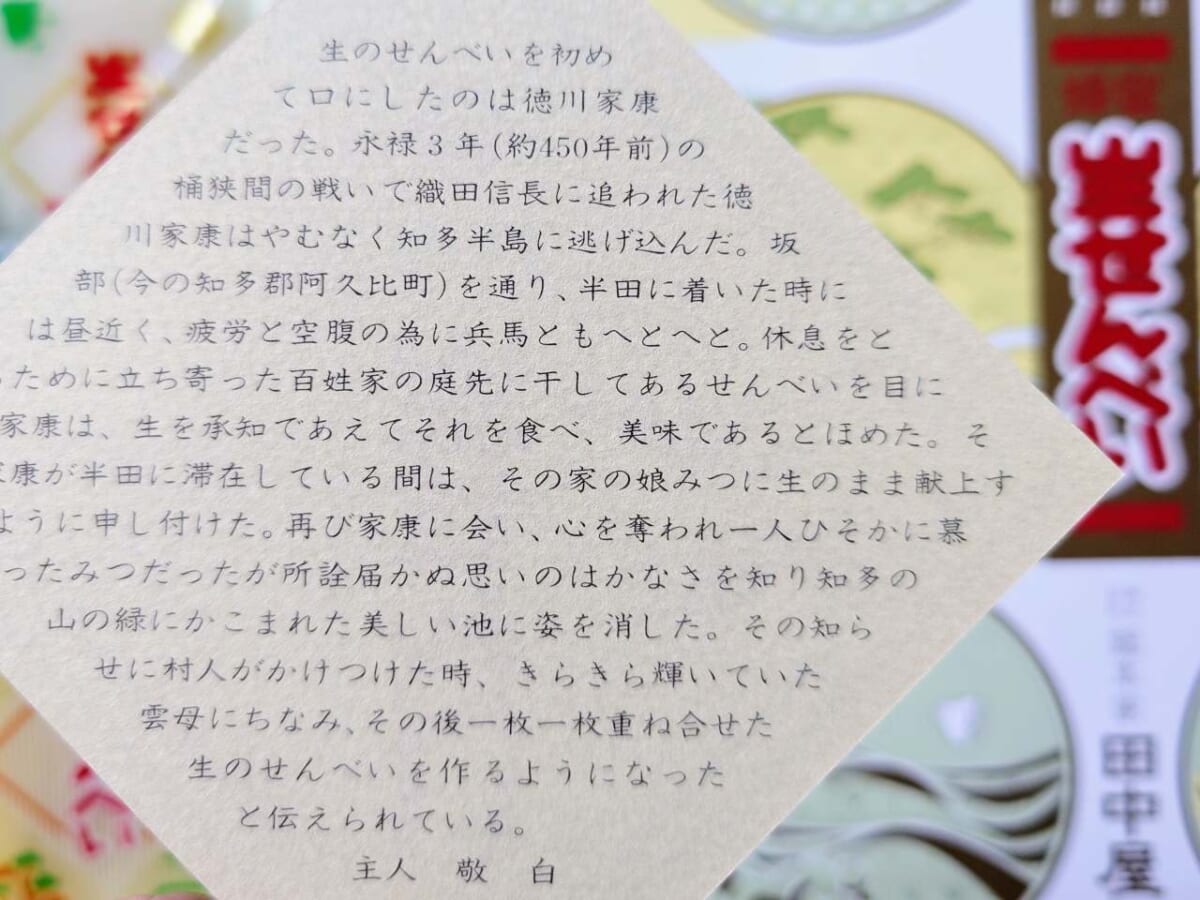 生のせんべいを初め
て口にしたのは徳川家康
だった。永禄3年(約450年前)の
桶狭間の戦いで織田信長に追われた徳
川家康はやむなく知多半島に逃げ込んだ。坂
部(今の知多郡阿久比町)を通り、半田に着いた時に
は昼近く、疲労と空腹の為に兵馬ともへとへと。休息をと
ために立ち寄った百姓家の庭先に干してあるせんべいを目に
家康は、生を承知であえてそれを食べ、美味であるとほめた。そ
康が半田に滞在している間は、その家の娘みつに生のまま献上す
ように申し付けた。再び家康に会い、心を奪われ一人ひそかに慕
ったみつだったが所詮届かぬ思いのはかなさを知り知多の
山の緑にかこまれた美しい池に姿を消した。その知ら
せに村人がかけつけた時、きらきら輝いていた
雲母にちなみ、その後一枚一枚重ね合せた
生のせんべいを作るようになった
と伝えられている。
主人 敬 白
生せんべい
田中屋